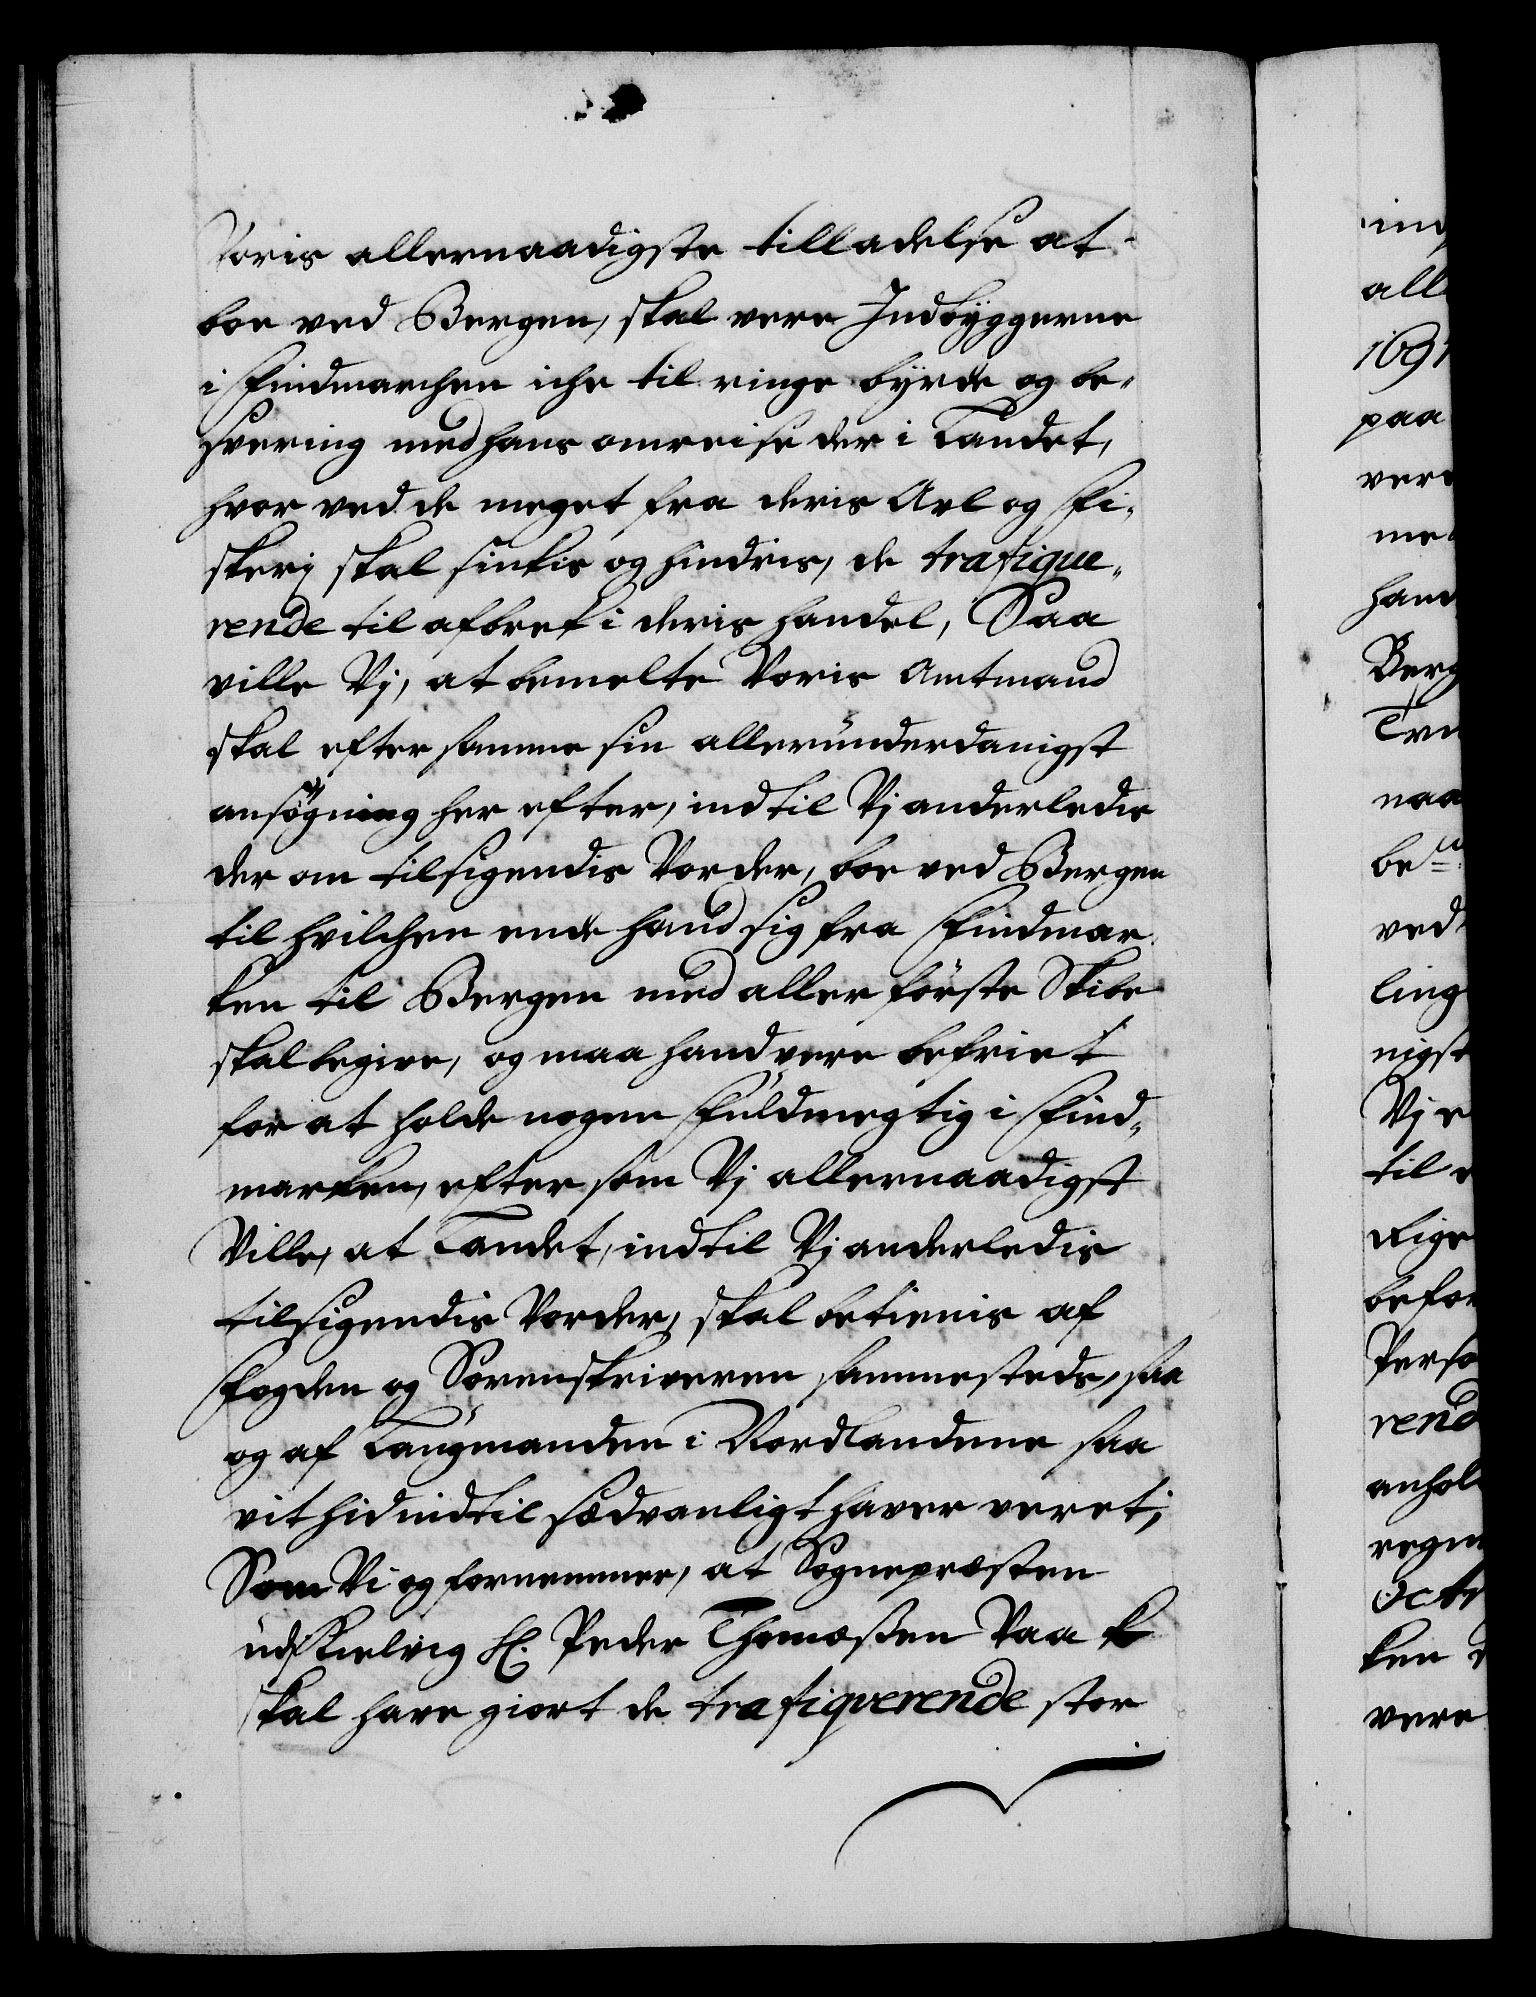 Voris allernaadigste tilladelse at
boe ved Bergen, skal vere Indbyggerne
i Findmarchen iche til ringe byrde og be-
svering med hans omreise der i Landet,
hvor ved de meget fra deris Avl og Fi-
skerj skal sinkis og hindris, de trafique-
rende til afbrek i deris handel, Saa
ville Vj, at bemelte Voris Amtmand
skal efter samme sin allerunderdanigst
ansøgning her efter, indtil Vj anderledis
der om tilsigendis Vorder, boe ved Bergen
til hvilchen ende hand sig fra Findmar-
ken til Bergen med aller første Skibe
skal begive, og maa hand vere befriet
for at holde nogen Fuldmegtig i Find-
marken, efter som Vj allernaadigst
Ville, at Landet, indtil Vj anderledis
tilsigendis Vorder, skal betienis af
Fogden og Sorenskriveren sammesteds, saa
og af Laugmanden i Nordlandene saa
vit hid indtil sædvanligt haver veret;
Som Vi og fornemmer, at Sognepræsten
ud Kielvig H. Peder Thomæssen
skal have giort de trafiqverende stor
ind
all
1691
paa
vere
me
hand
Berg
naa
be
ved
ling
nigst
Vj
til
Rige
befor
Perso
rend
anhol
regn
Octr
ken
vere